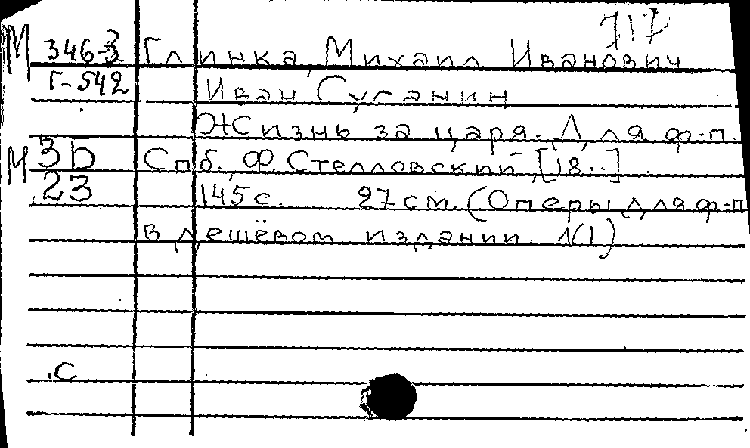 717
М 346-3 Глинка, Михаил Иванович
Г-542 Иван Сусанин
Жизнь за царя. Для ф-п.
М 3Б Спб., Ф. Стелловский, [18..]
23 145 с. 27 см. (Оперы для ф-п
в дешёвом издании. 1(1)
.с